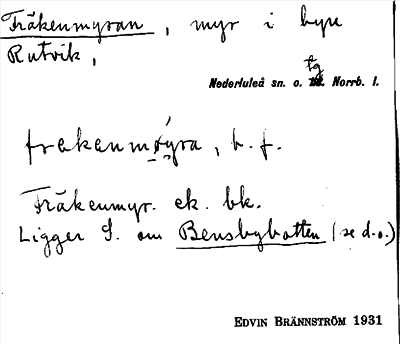 Fräkenmyran, myr i byn
Rutvik,
Nederluleå sn. o. tg. Norrb. l.
frakenmöyra, b. f.
Fräkenmyr. ek. bk.
Ligger S. om Bensbybotten (se d.o.)
EDVIN BRÄNNSTRÖM 1931